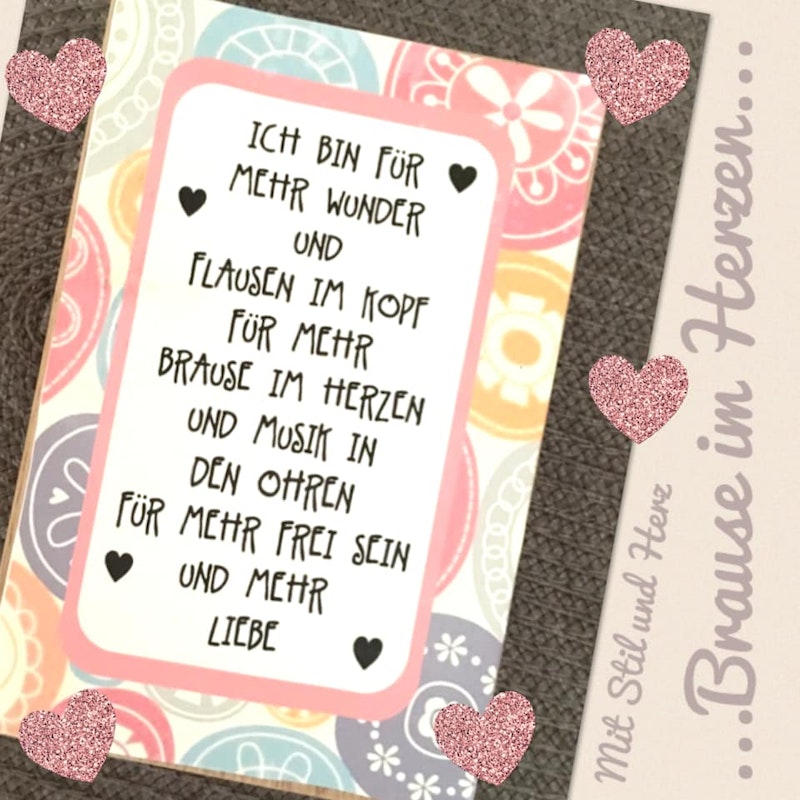 ICH BIN FÜR
MEHR WUNDER
UND
FLAUSEN IM KOPF
FÜR MEHR
BRAUSE IM HERZEN
UND MUSIK IN
DEN OHREN
FÜR MEHR FREI SEIN
UND MEHR
LIEBE
Mit Stil und Herz
...Brause im Herzen...